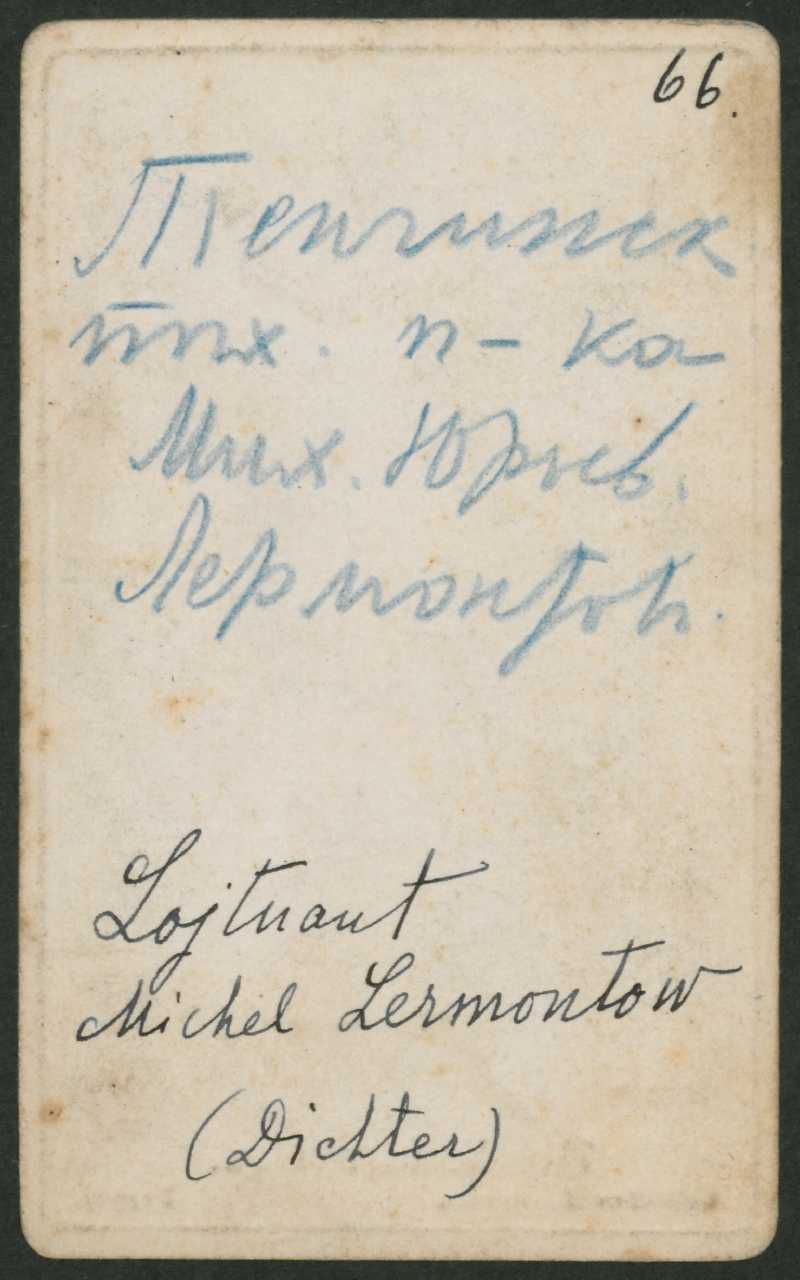 66.
Тенгинск
пих. п-ка
Мих. Юрьев.
Лермонтов.
Lojtnant
Michel Lermontow
(Dichter)